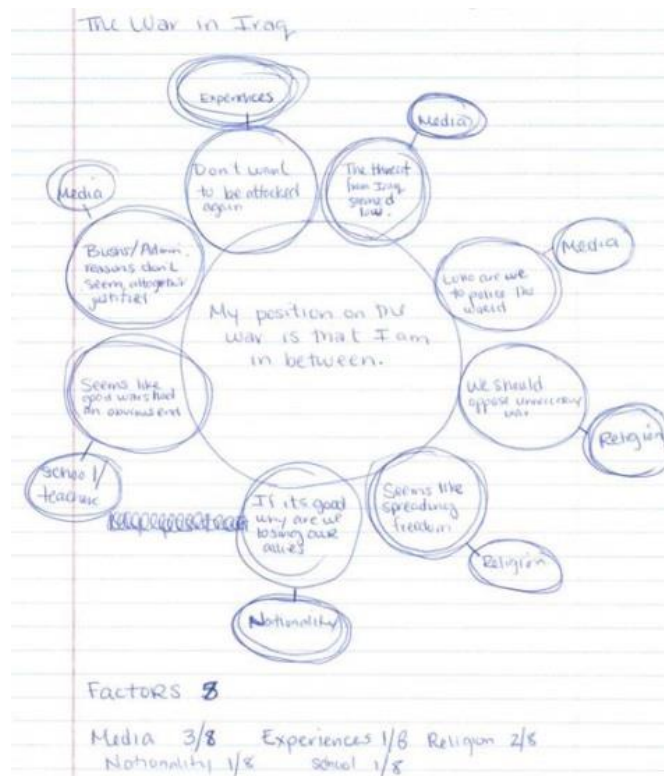 The War in Iraq
Experiences
Don't want
to be attacked
again
Media
The threat
from Iraq
seemed
low.
Media
Who are we
to police the
world
We should
oppose unnecessary
war
Religion
Seems like
spreading
freedom
Religion
If its good
why are we
losing our
allies
Nationality
Seems like
good wars had
an obvious end
School/
teacher
Media
Bushs/Admin.
reasons don't
seem altogether
justified
My position on the
war is that I am
in between.
Factors 8
Media 3/8 Experiences 1/8 Religion 2/8
Nationality 1/8 school 1/8